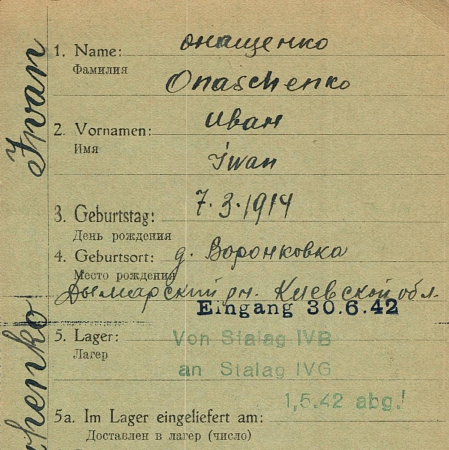 1. Name: онащенко
Фамилия
Onaschenko
2. Vornamen: иван
Имя
Iwan
3. Geburtstag: 7.3.1914
День рождения
4. Geburtsort: д. Воронковка
Место рождения
Дымарский рн. Киевской обл.
Eingang 30.6.42
5. Lager: Von Stalag IVB
Лагер
an Stalag IVG
1,5.42 abg.!
5a. Im Lager eingeliefert am:
Доставлен в лагер (число)
Iwan
chenko